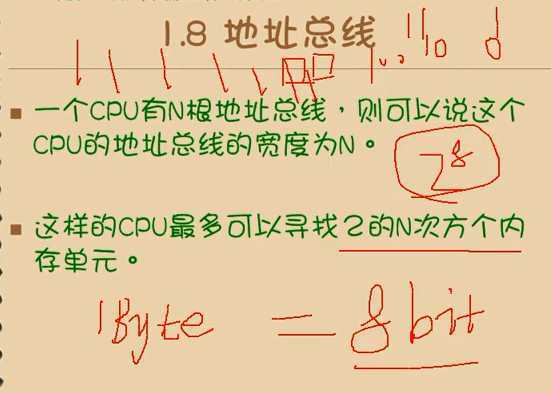 1.8 地址总线
一个CPU有N根地址总线，则可以说这个
CPU的地址总线的宽度为N。
2^8
这样的CPU最多可以寻找2的N次方个内
存单元。
1Byte = 8bit